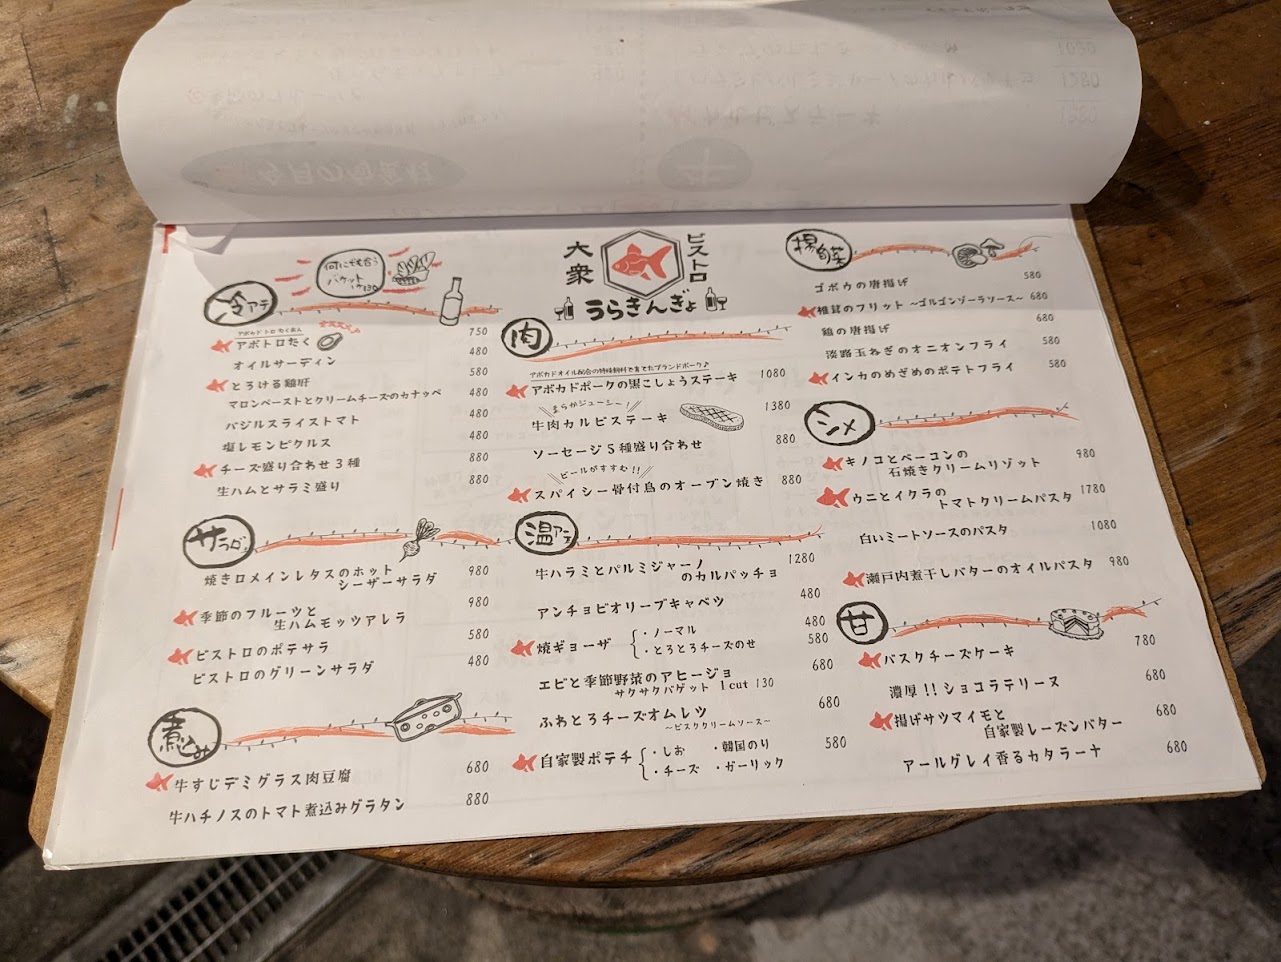 大衆
ビストロ
うらきんぎょ
何にでも合う
バケット
1ヶ130
冷アテ
アボカド トロ たくあん
オススメ
アボトロたく 750
オイルサーディン 480
とろける鶏肝 580
マロンペーストとクリームチーズのカナッペ 480
バジルスライストマト 480
塩レモンピクルス 480
チーズ盛り合わせ3種 880
生ハムとサラミ盛り 880
サラダ
焼きロメインレタスのホット
シーザーサラダ 980
季節のフルーツと
生ハムモッツアレラ 980
ビストロのポテサラ 580
ビストロのグリーンサラダ 480
煮込み
牛すじデミグラス肉豆腐 680
牛ハチノスのトマト煮込みグラタン 880
肉
アボカドオイル配合の特味飼料で育てたブランドポーク♪
アボカドポークの黒こしょうステーキ 1080
まらかジューシー!
牛肉カルビステーキ 1380
ソーセージ5種盛り合わせ 880
ビールがすすむ!!
スパイシー骨付鳥のオーブン焼き 880
温アテ
牛ハラミとパルミジャーノ
のカルパッチョ 1280
アンチョビオリーブキャベツ 480
焼ギョーザ ・ノーマル 480
・とろとろチーズのせ 580
エビと季節野菜のアヒージョ 680
サクサクバゲット 1cut 130
ふわとろチーズオムレツ 680
～ビスククリームソース～
自家製ポテチ ・しお ・韓国のり 580
・チーズ ・ガーリック
揚旬菜
ゴボウの唐揚げ 580
椎茸のフリット ～ゴルゴンゾーラソース～ 680
鶏の唐揚げ 680
淡路玉ねぎのオニオンフライ 580
インカのめざめのポテトフライ 580
シメ
キノコとベーコンの
石焼きクリームリゾット 980
ウニとイクラの
トマトクリームパスタ 1780
白いミートソースのパスタ 1080
瀬戸内煮干しバターのオイルパスタ 980
甘
バスクチーズケーキ 780
濃厚!!ショコラテリーヌ 680
揚げサツマイモと
自家製レーズンバター 680
アールグレイ香るカタラーナ 680